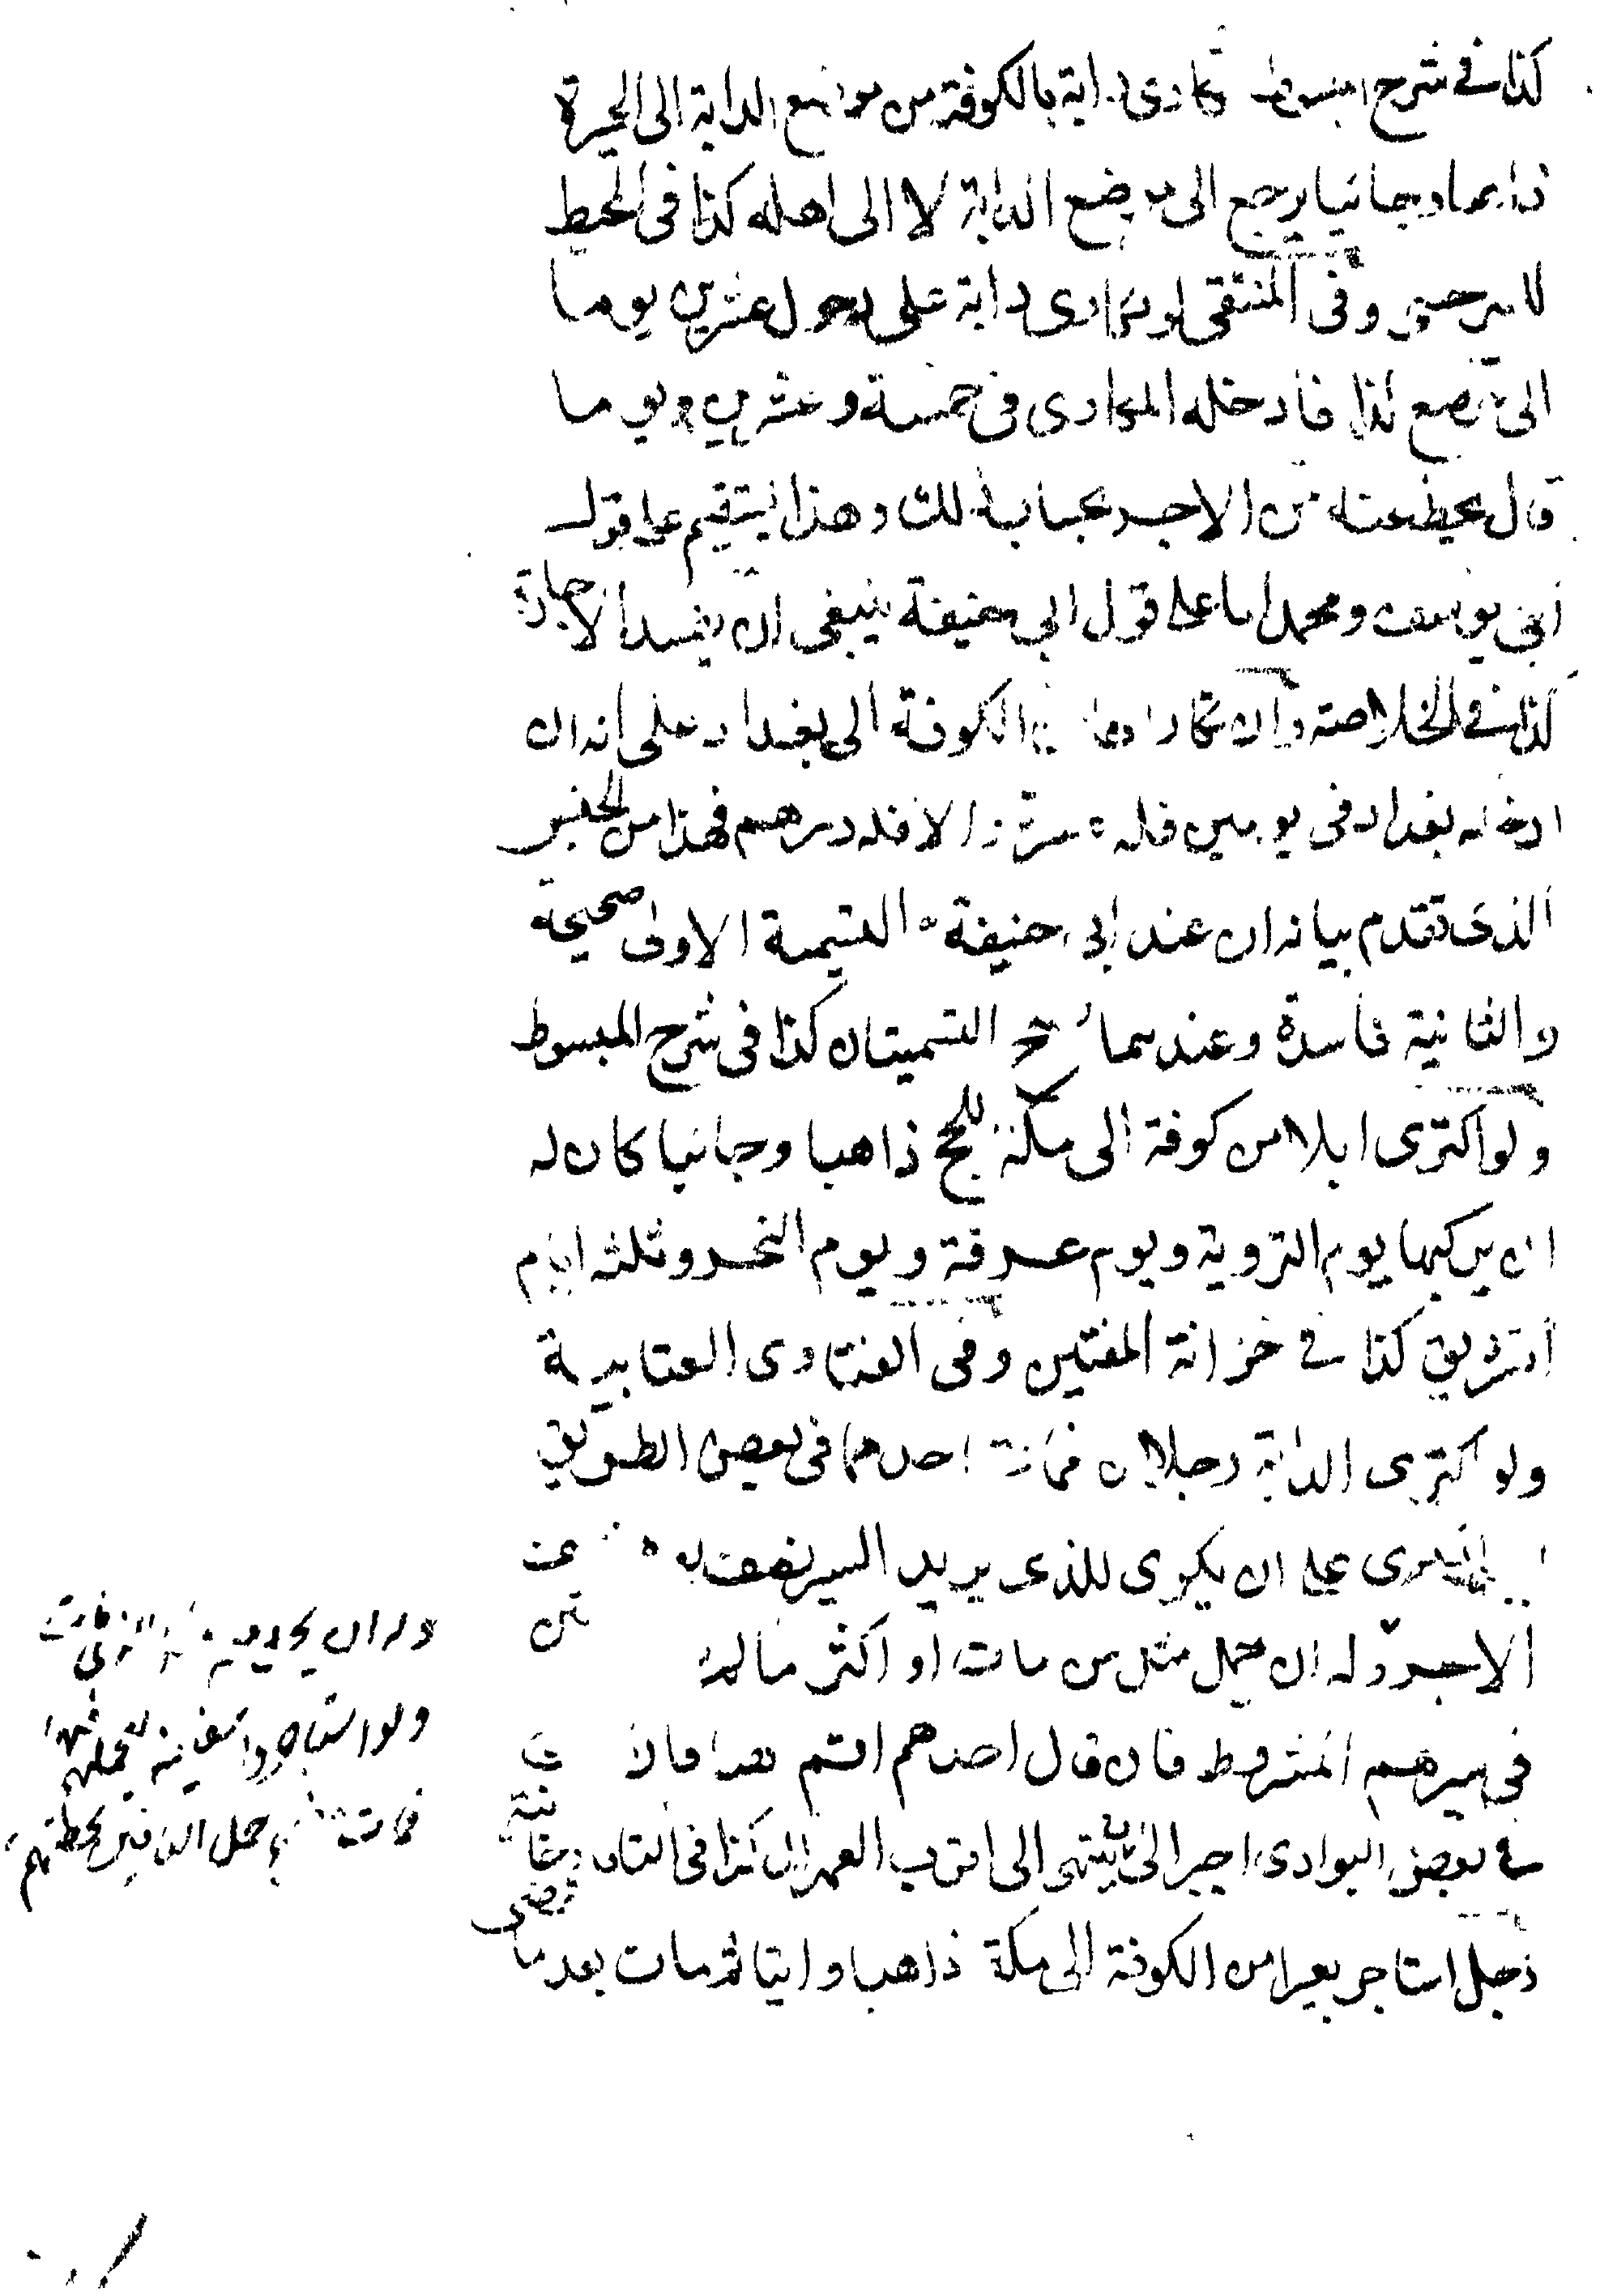 كذا في شرح المبسوط تكارى دابة بالكوفة من موضع الدابة الى الحيرة
ذاهبا وجائيا يرجع الى موضع الدابة لا الى اهله كذا في المحيط
وفي المنتقى لو تكارى دابة على دخول عشرين يوما
الى موضع كذا فادخله المكارى في خمسة وعشرين يوما
قال يحط عنه من الاجر بحساب ذلك وهذا يستقيم على قول
ابي يوسف ومحمد اما على قول ابي حنيفة ينبغي ان يفسد الاجارة
كذا في الخلاصة وان تكاراها من الكوفة الى بغداد على انه ان
ادخله بغداد في يومين فله عشرة والا فله درهم فهذا من الجنس
الذي تقدم بيانه ان عند ابي حنيفة التسمية الاولى صحيحة
والثانية فاسدة وعندهما تصح التسميتان كذا في شرح المبسوط
ولو اكترى ابلا من كوفة الى مكة للحج ذاهبا وجائيا كان له
ان يركبها يوم التروية ويوم عرفة ويوم النحر وثلثة ايام
التشريق كذا في خزانة المفتين وفي الفتاوى العتابية
ولو اكترى الدابة رجلان فمات احدهما في بعض الطريق
على ان يكرى للذي يريد السير نصفه
الاجر وله ان يحمل مثل من مات او اكثر ما لم
في سيرهم المشروط فان قال احدهم اقيم هذا فان
في بعض البوادى اجبر الى ان ينتهى الى اقرب العمران كذا في التاتارخانية
رجل استاجر بعيرا من الكوفة الى مكة ذاهبا وايتا ثم مات بعد ما
ولو استاجروا سفينة ليحملهم
فمات